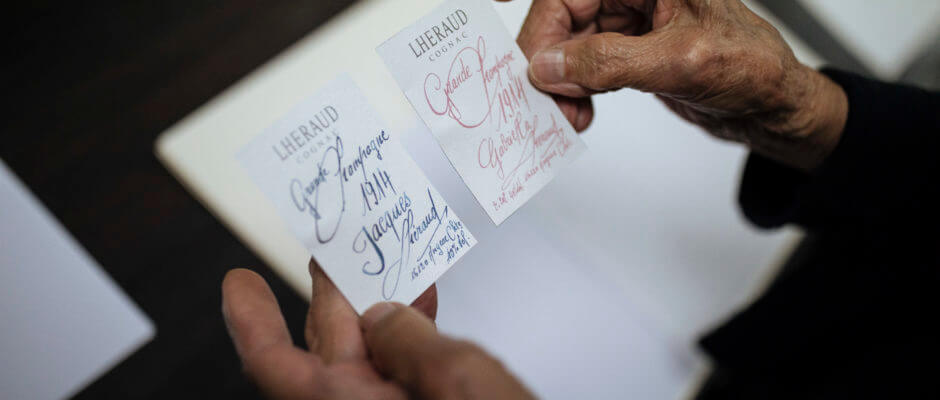 LHERAUD
COGNAC
Grande Champagne
1914
Jacques
Lhéraud
LHERAUD
COGNAC
Grande Champagne
1914
Gabriella
Lhéraud